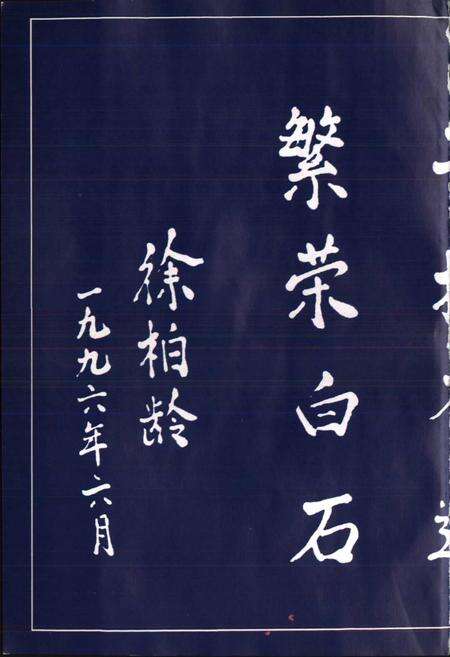 繁荣白石
徐柏龄
一九九六年六月